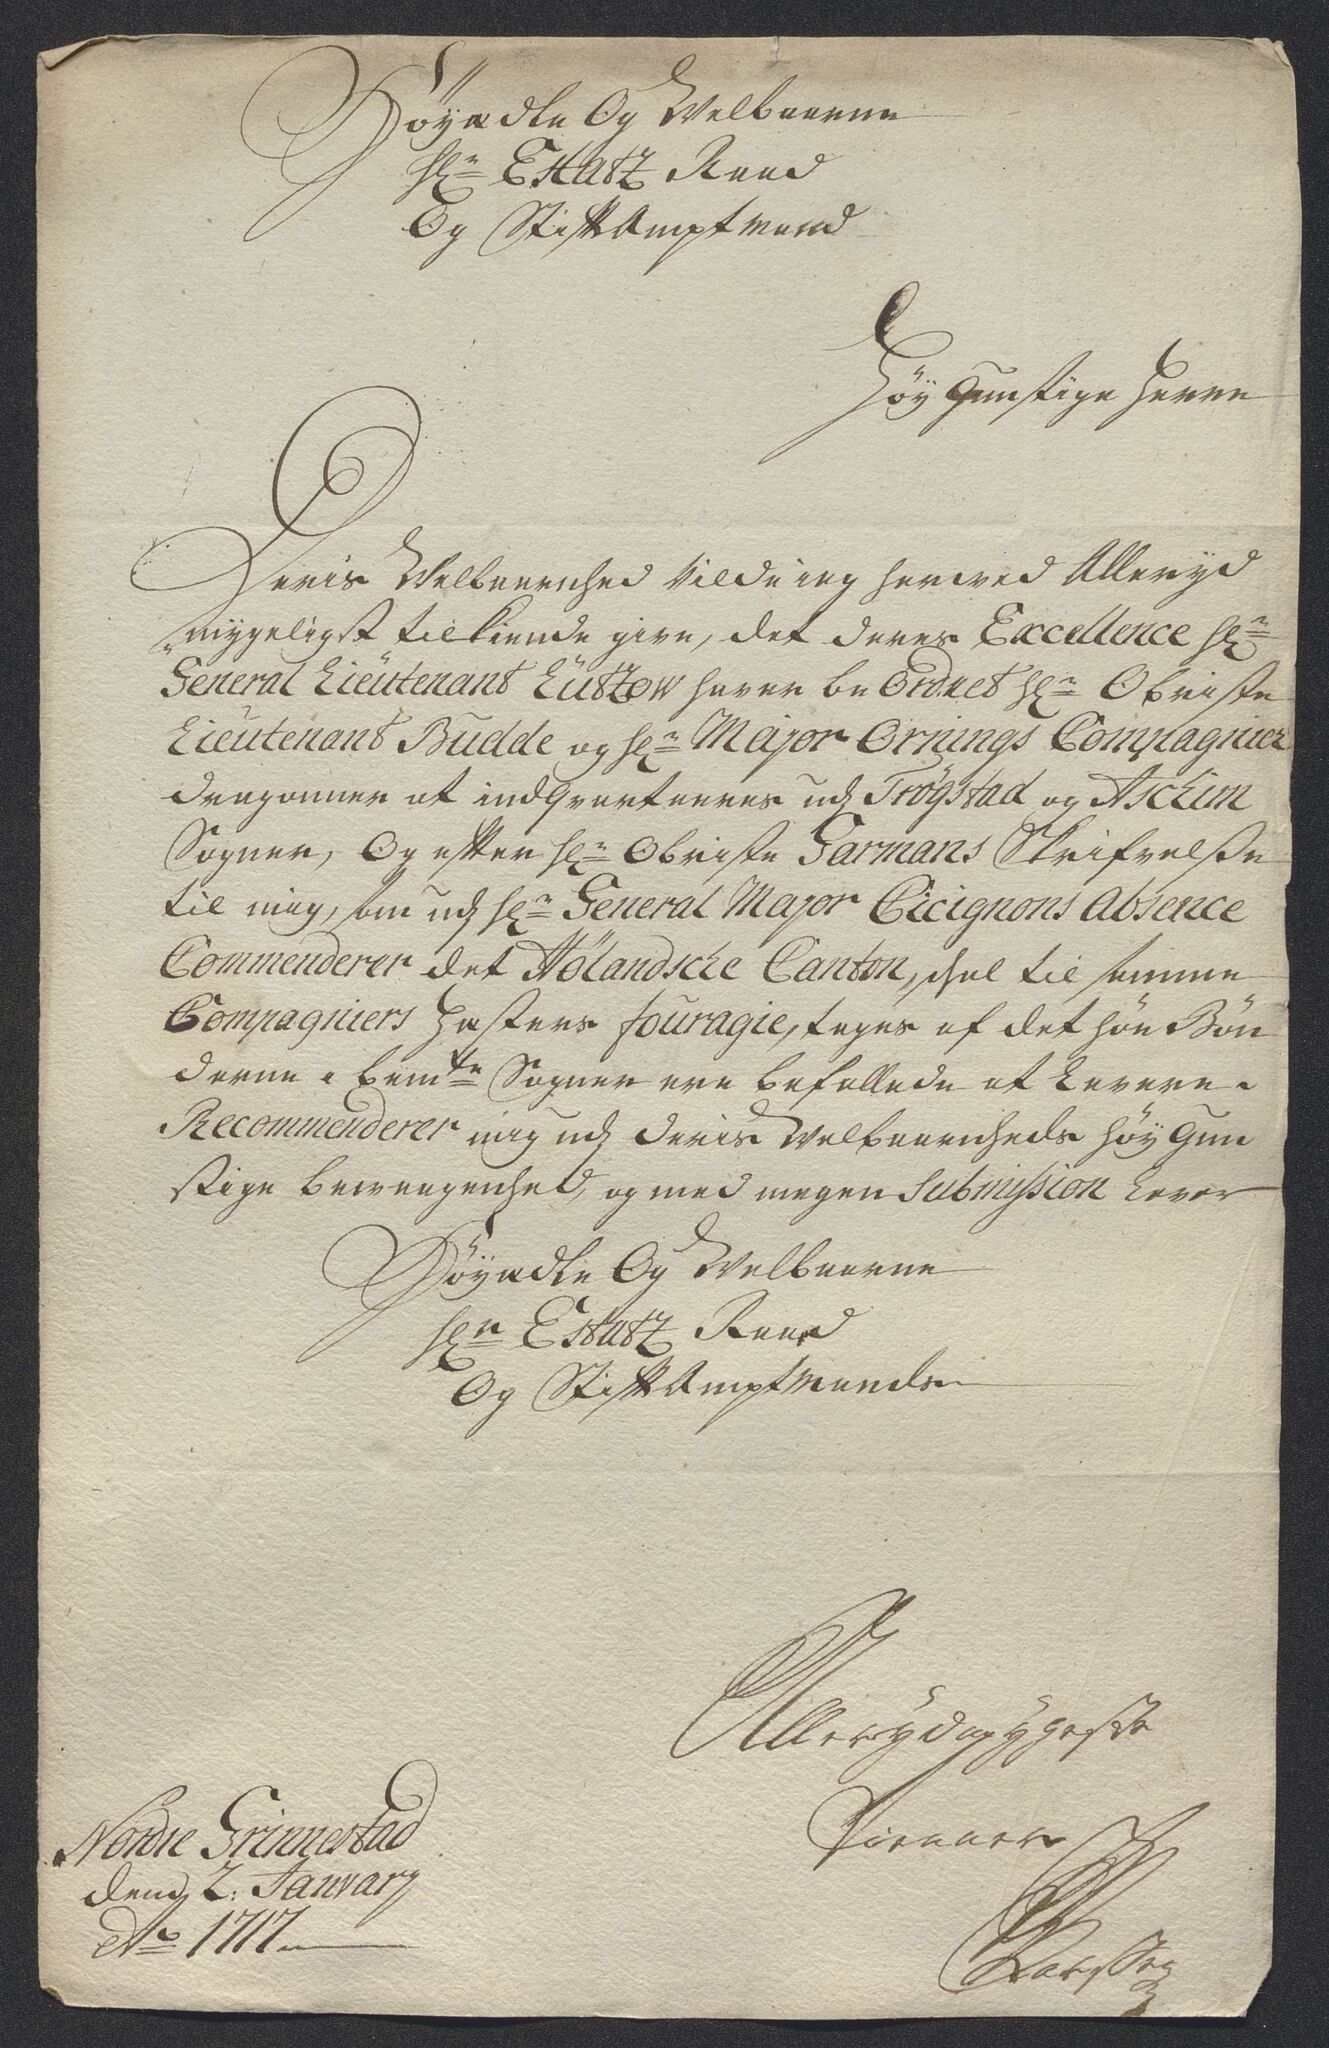 Høyædle Og Welbaarne
Hr Etatz Raad
Og Stiftsamptmand
Høygunstige Herre
Deris Welbaarenhed vilde ieg herved Alleryd
mygeligst tilkiende give, det deres Excellence Hr
General Lieutenant Lützow haver beOrdnet Hr Obriste
Lieutenant Budde og Hr Major Ornings Compagnier
dragonner at indqvarteeres udj Trögstad og Aschim
Sogner, Og efter Hr Obriste Garmans Skrifvelsse
til mig, som udj Hr General Major Cicignons Absence
Commenderer det Hölandsche Canton, schal til samme
Compagniers Hesters fouragie, tages af det høe Bøn
derne i bemte Sogner ere befallede at Levere.
Recommenderer mig udj deris Welbaarenheds høygun
stige bewaagenhed, og med megen Submission Lever
Høyædle Og Welbaarne
Hr Etatz Raad
Og Stiftsamptmands
Allerydmygeste
Tienner
Nordre Grinnestad
dend 2: Janvary
Ao 1717